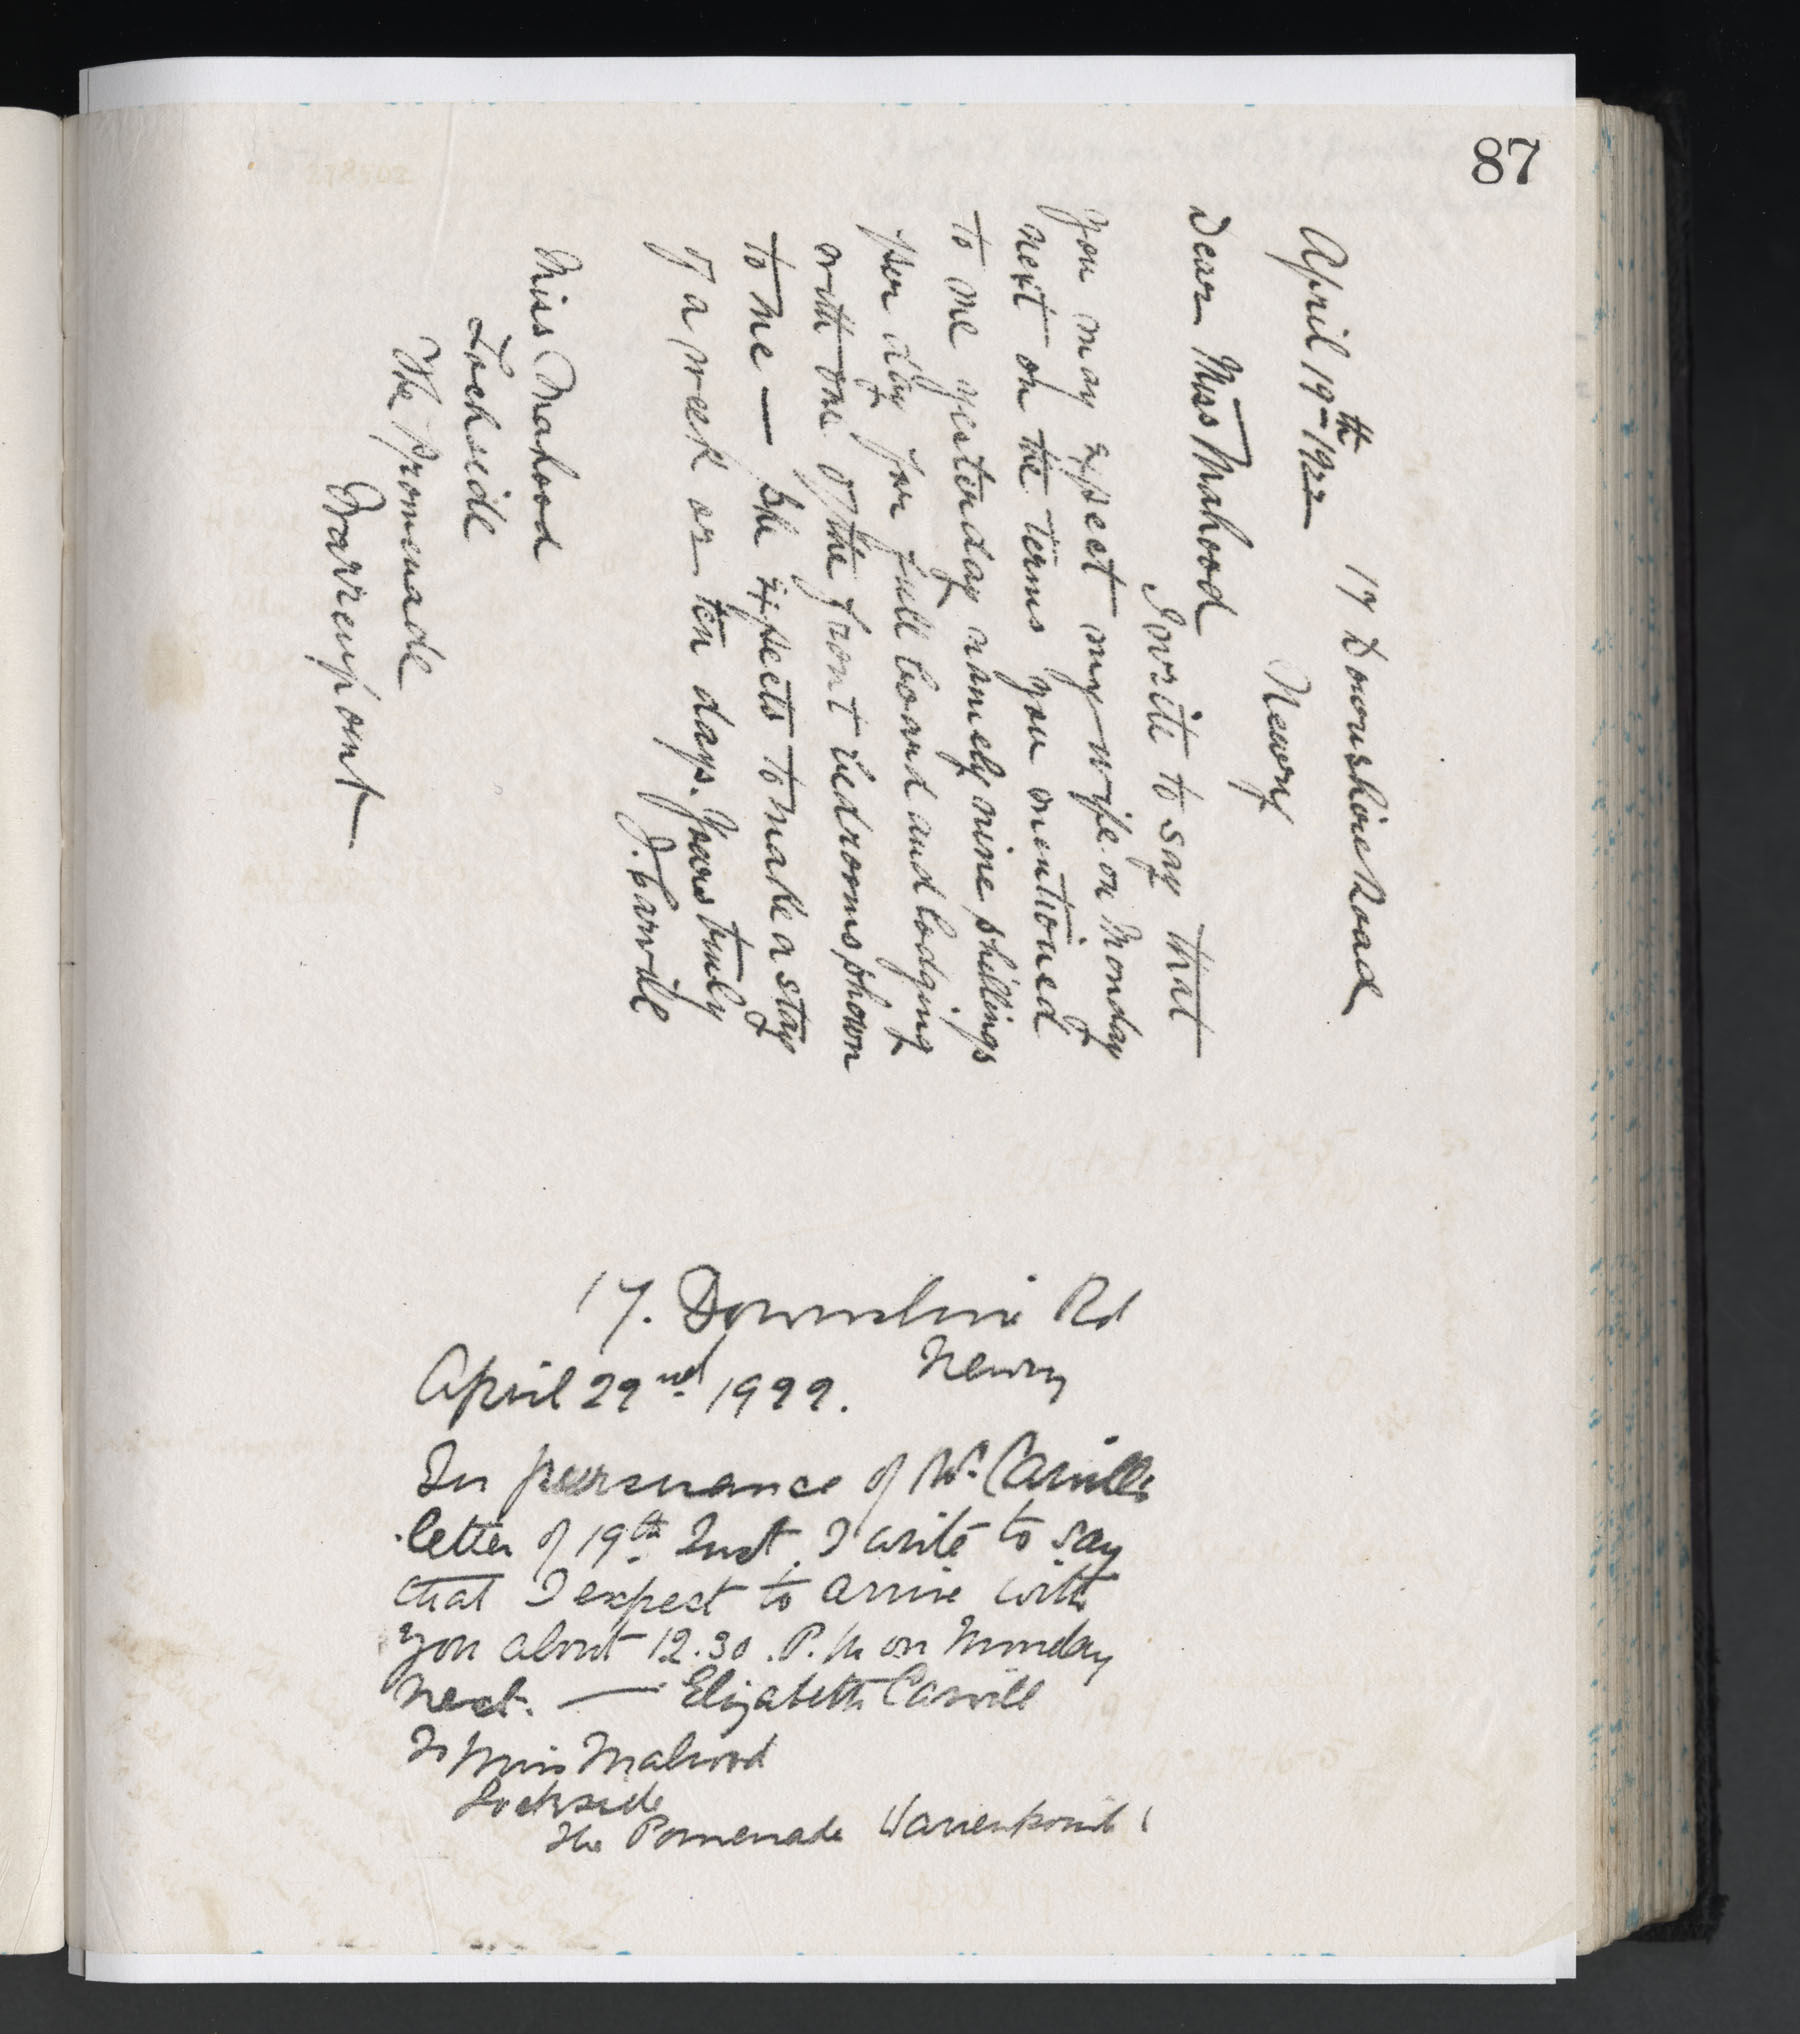 87
17 Downshire Road
Newry
April 19th 1922
Dear Miss Mahood
I write to say that
you may expect my wife on Monday
next on the terms you mentioned
to me yesterday namely nine shillings
per day for full board and lodging
with one of the front bedrooms shown
to me — She expects to make a stay
of a week or ten days. Yours truly
J. Carvill
Miss Mahood
Lochside
The Promenade
Warrenpoint
17. Downshire Rd
Newry
April 22nd 1922.
In persuance of Mr. Carvills
letter of 19th Inst. I write to say
that I expect to arrive with
you about 12.30. P.M on Monday
next. — Elizabeth Carvill
To Miss Mahood
Lochside
The Promenade Warrenpoint